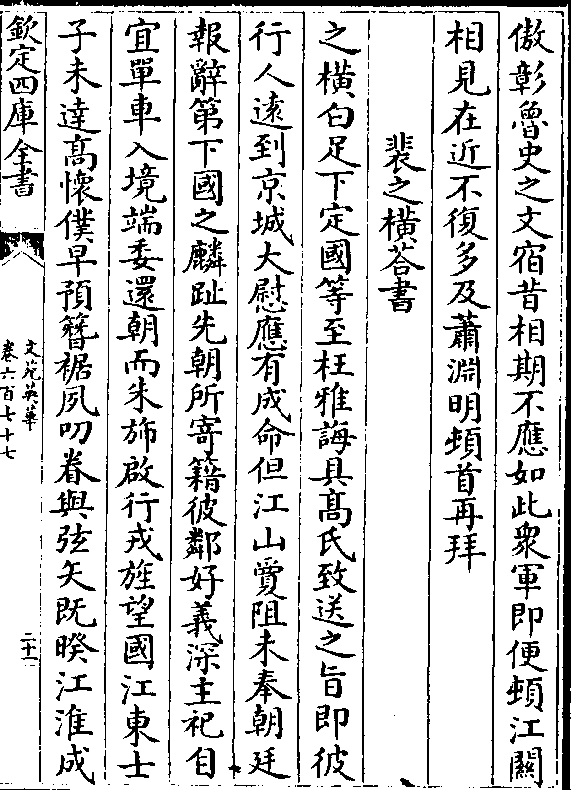 傲彰魯史之文宿昔相期不應如此衆軍即便頓江關
相見在近不復多及蕭淵明頓首再拜
裴之横荅書
之横白足下定國等至枉雅誨具髙氏致送之旨即彼
行人逺到京城大慰應有成命但江山敻阻未奉朝廷
報辭第下國之麟趾先朝所寄籍彼鄰好義深主祀自
宜單車入境端委還朝而朱斾啟行戎旌望國江東士
子未達髙懷僕早預簪裾夙叨眷與弦矢既暌江淮成
欽定四庫全書
文苑英華
卷六百七十七
二十一